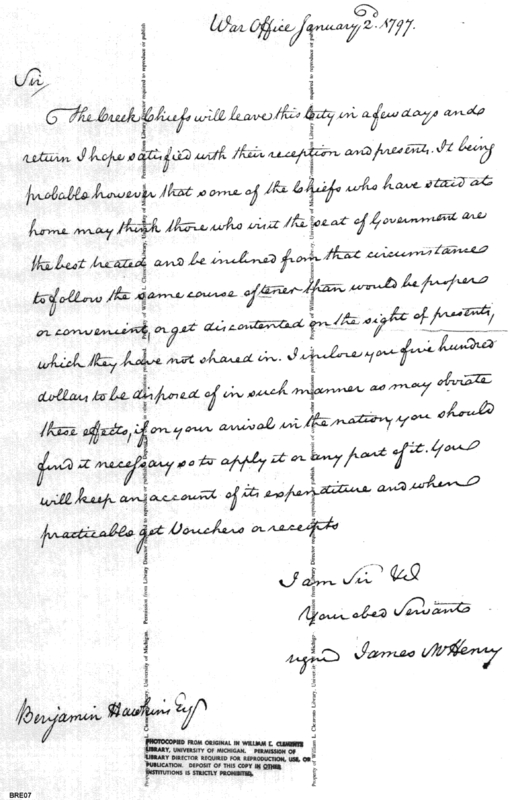 War Office January 2d. 1797.
Sir
The Creek Chiefs will leave this City in a few days and
return I hope satisfied with their reception and presents. It being
probable however that some of the Chiefs who have staid at
home may think those who visit the seat of Government are
the best treated and be inclined from that circumstance
to follow the same course oftener than would be proper
or convenient, or get discontented on the sight of presents,
which they have not shared in. I inclose you five hundred
dollars to be disposed of in such manner as may obviate
these effects, if on your arrival in the nation, you should
find it necessary so to apply it or any part of it. You
will keep an account of its expenditure and when
practicable get Vouchers or receipts
I am Sir &c
Your obed Servant
signed James McHenry
Benjamin Hawkins Esqr
PHOTOCOPIED FROM ORIGINAL IN WILLIAM L. CLEMENTS
LIBRARY, UNIVERSITY OF MICHIGAN. PERMISSION OF
LIBRARY DIRECTOR REQUIRED FOR REPRODUCTION, USE, OR
PUBLICATION. DEPOSIT OF THIS COPY IN OTHER
INSTITUTIONS IS STRICTLY PROHIBITED.
Property of William L. Clements Library, University of Michigan. Permission from Library Director required to reproduce or publish
BRE07